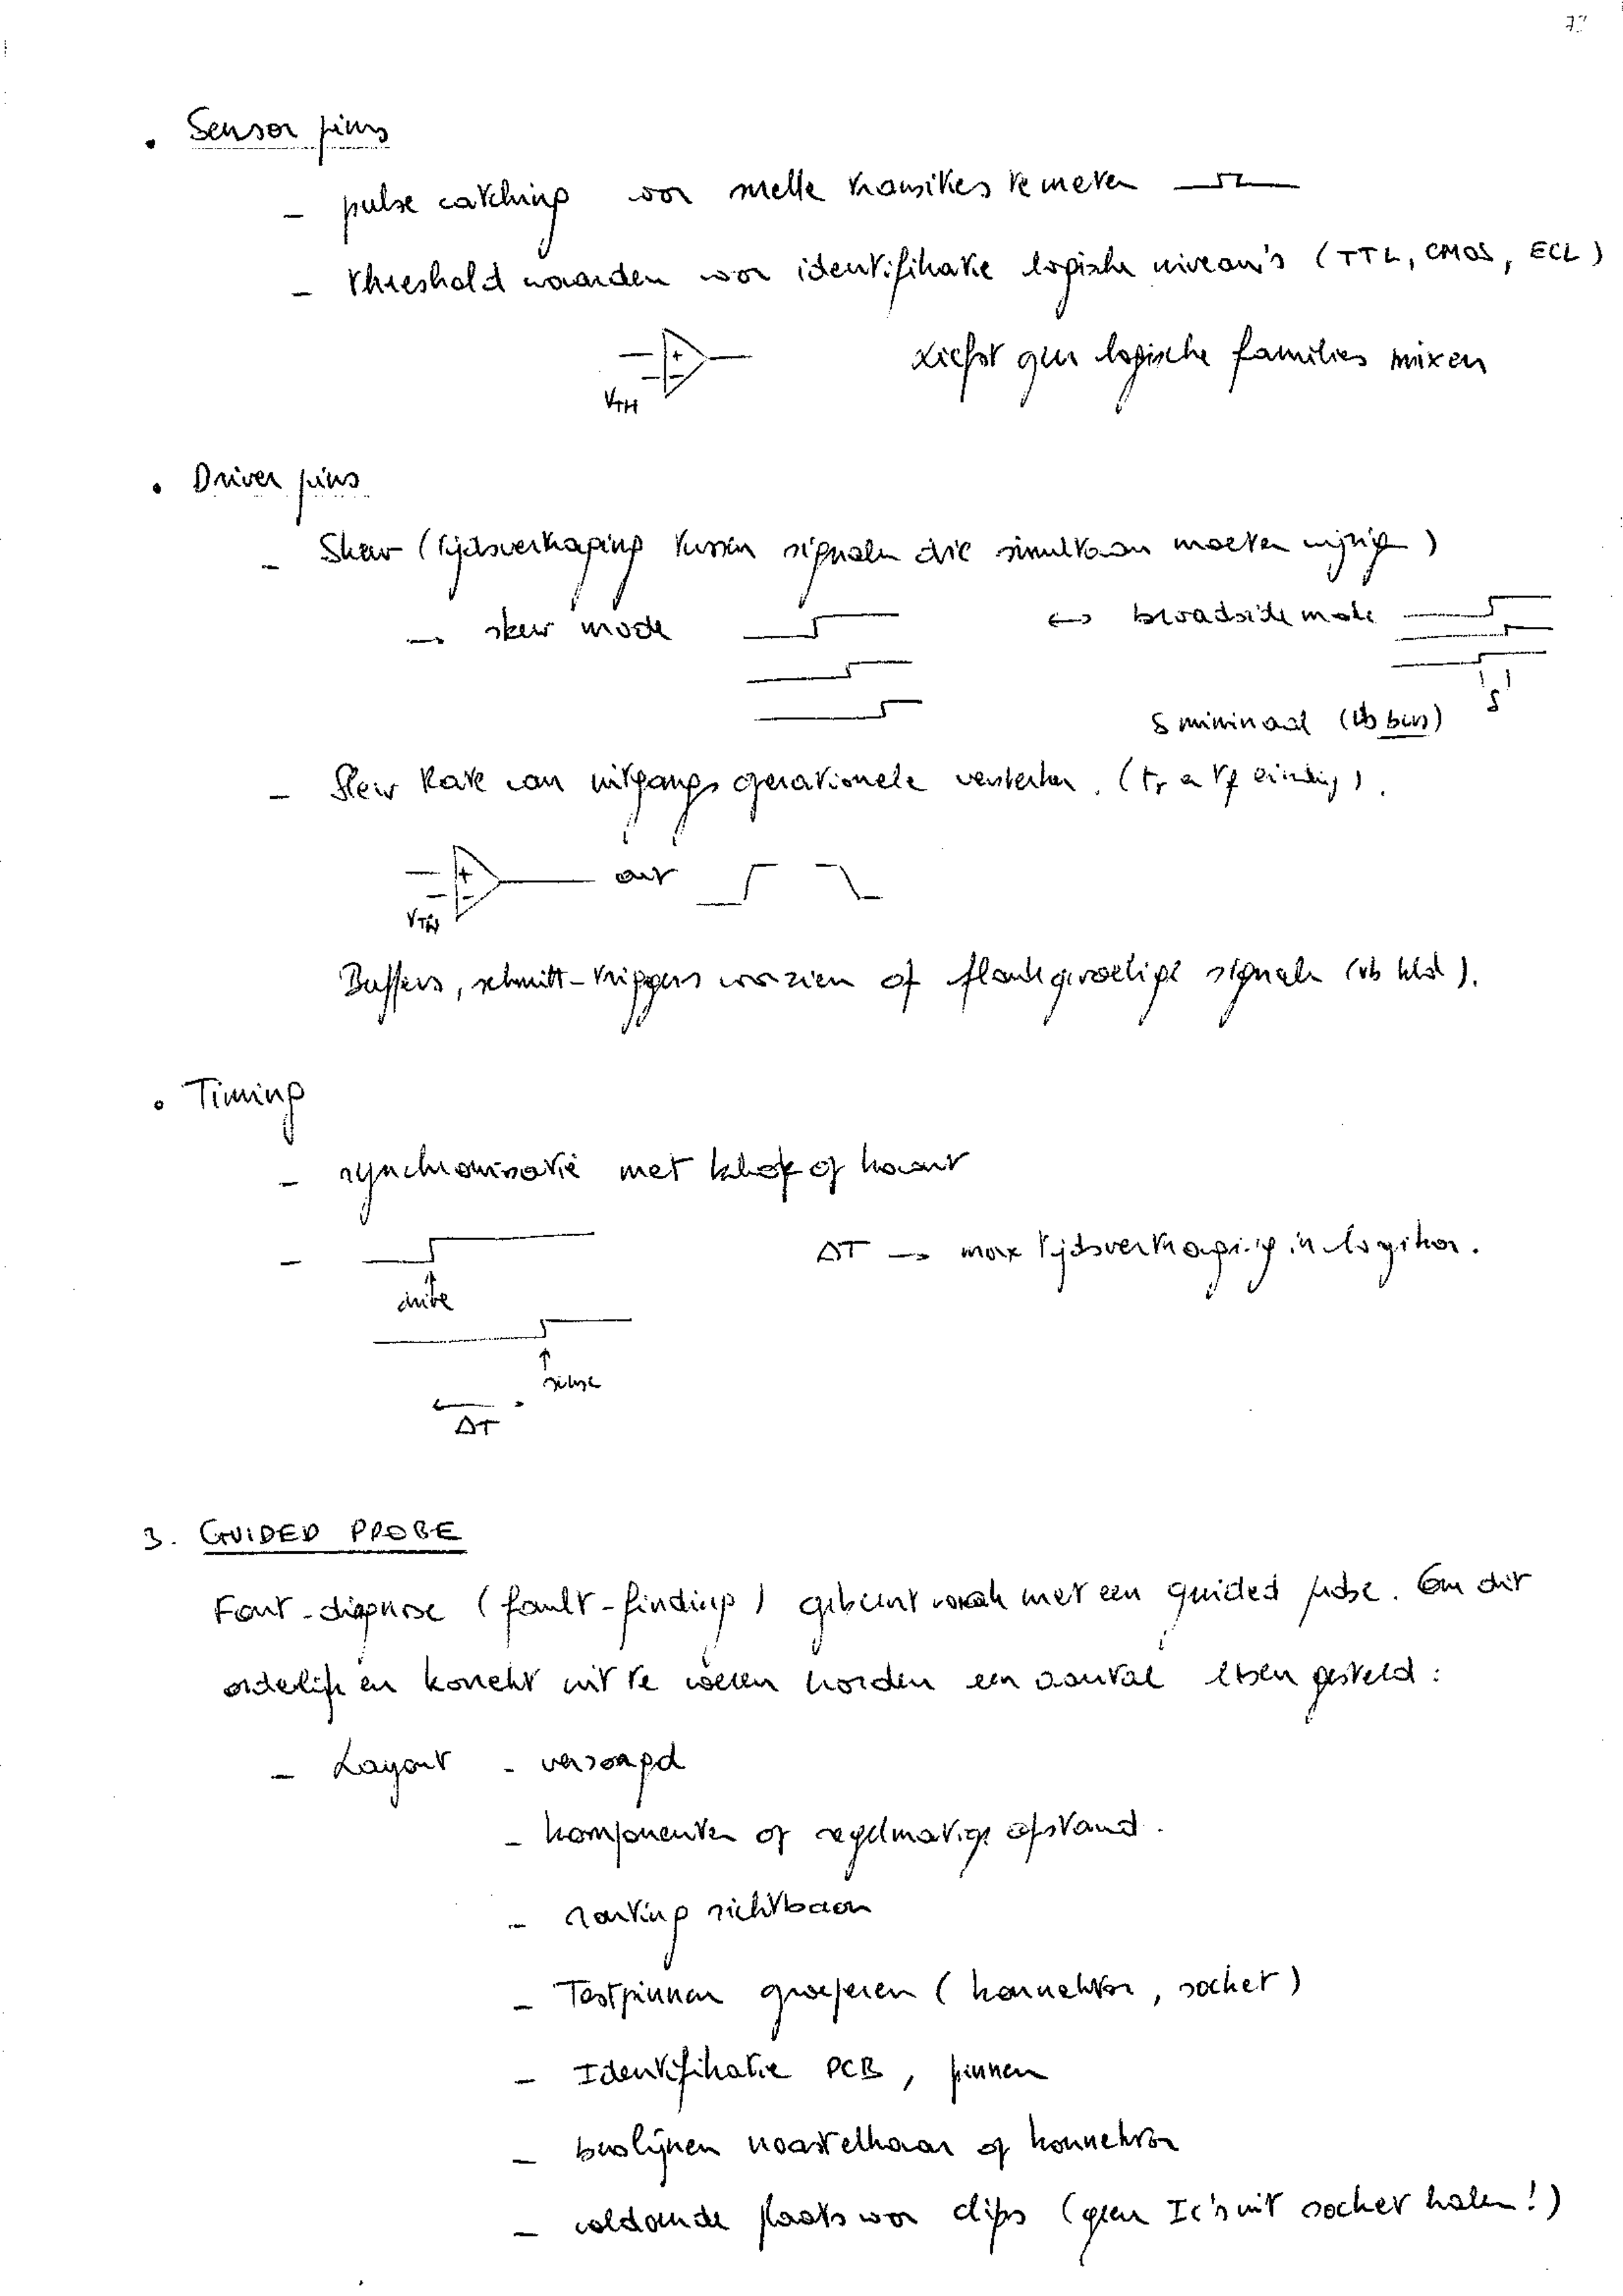 • Sensor pins
- pulse catching voor snelle transities te meten
- threshold waarden voor identifikatie logische niveau's (TTL, CMOS, ECL)
+
-
VTH
Liefst geen logische families mixen
• Driver pins
- Skew (tijdsvertraging tussen signalen die simultaan moeten wijzigen)
→ skew mode ↔ broadside mode
δ
δ minimaal (vb bus)
- Slew Rate van uitgangs operationele versterker. (tr en tf eindig).
+
-
out
VTH
Buffers, schmitt-triggers voorzien op flankgevoelige signalen (vb klok).
• Timing
- synchronisatie met klok op kaart
- ΔT → max tijdsvertraging in logika.
drive
sense
ΔT
3. GUIDED PROBE
Fout-diagnose (fault-finding) gebeurt vaak met een guided probe. Om dit
ordelijk en korrekt uit te voeren worden een aantal eisen gesteld:
- Layout - verzorgd
- komponenten op regelmatige afstand.
- routing zichtbaar
- Testpinnen groeperen (konnektor, socket)
- Identifikatie PCB, pinnen
- buslijnen naast elkaar op konnektor
- voldoende plaats voor clips (geen Ic's uit socket halen!)